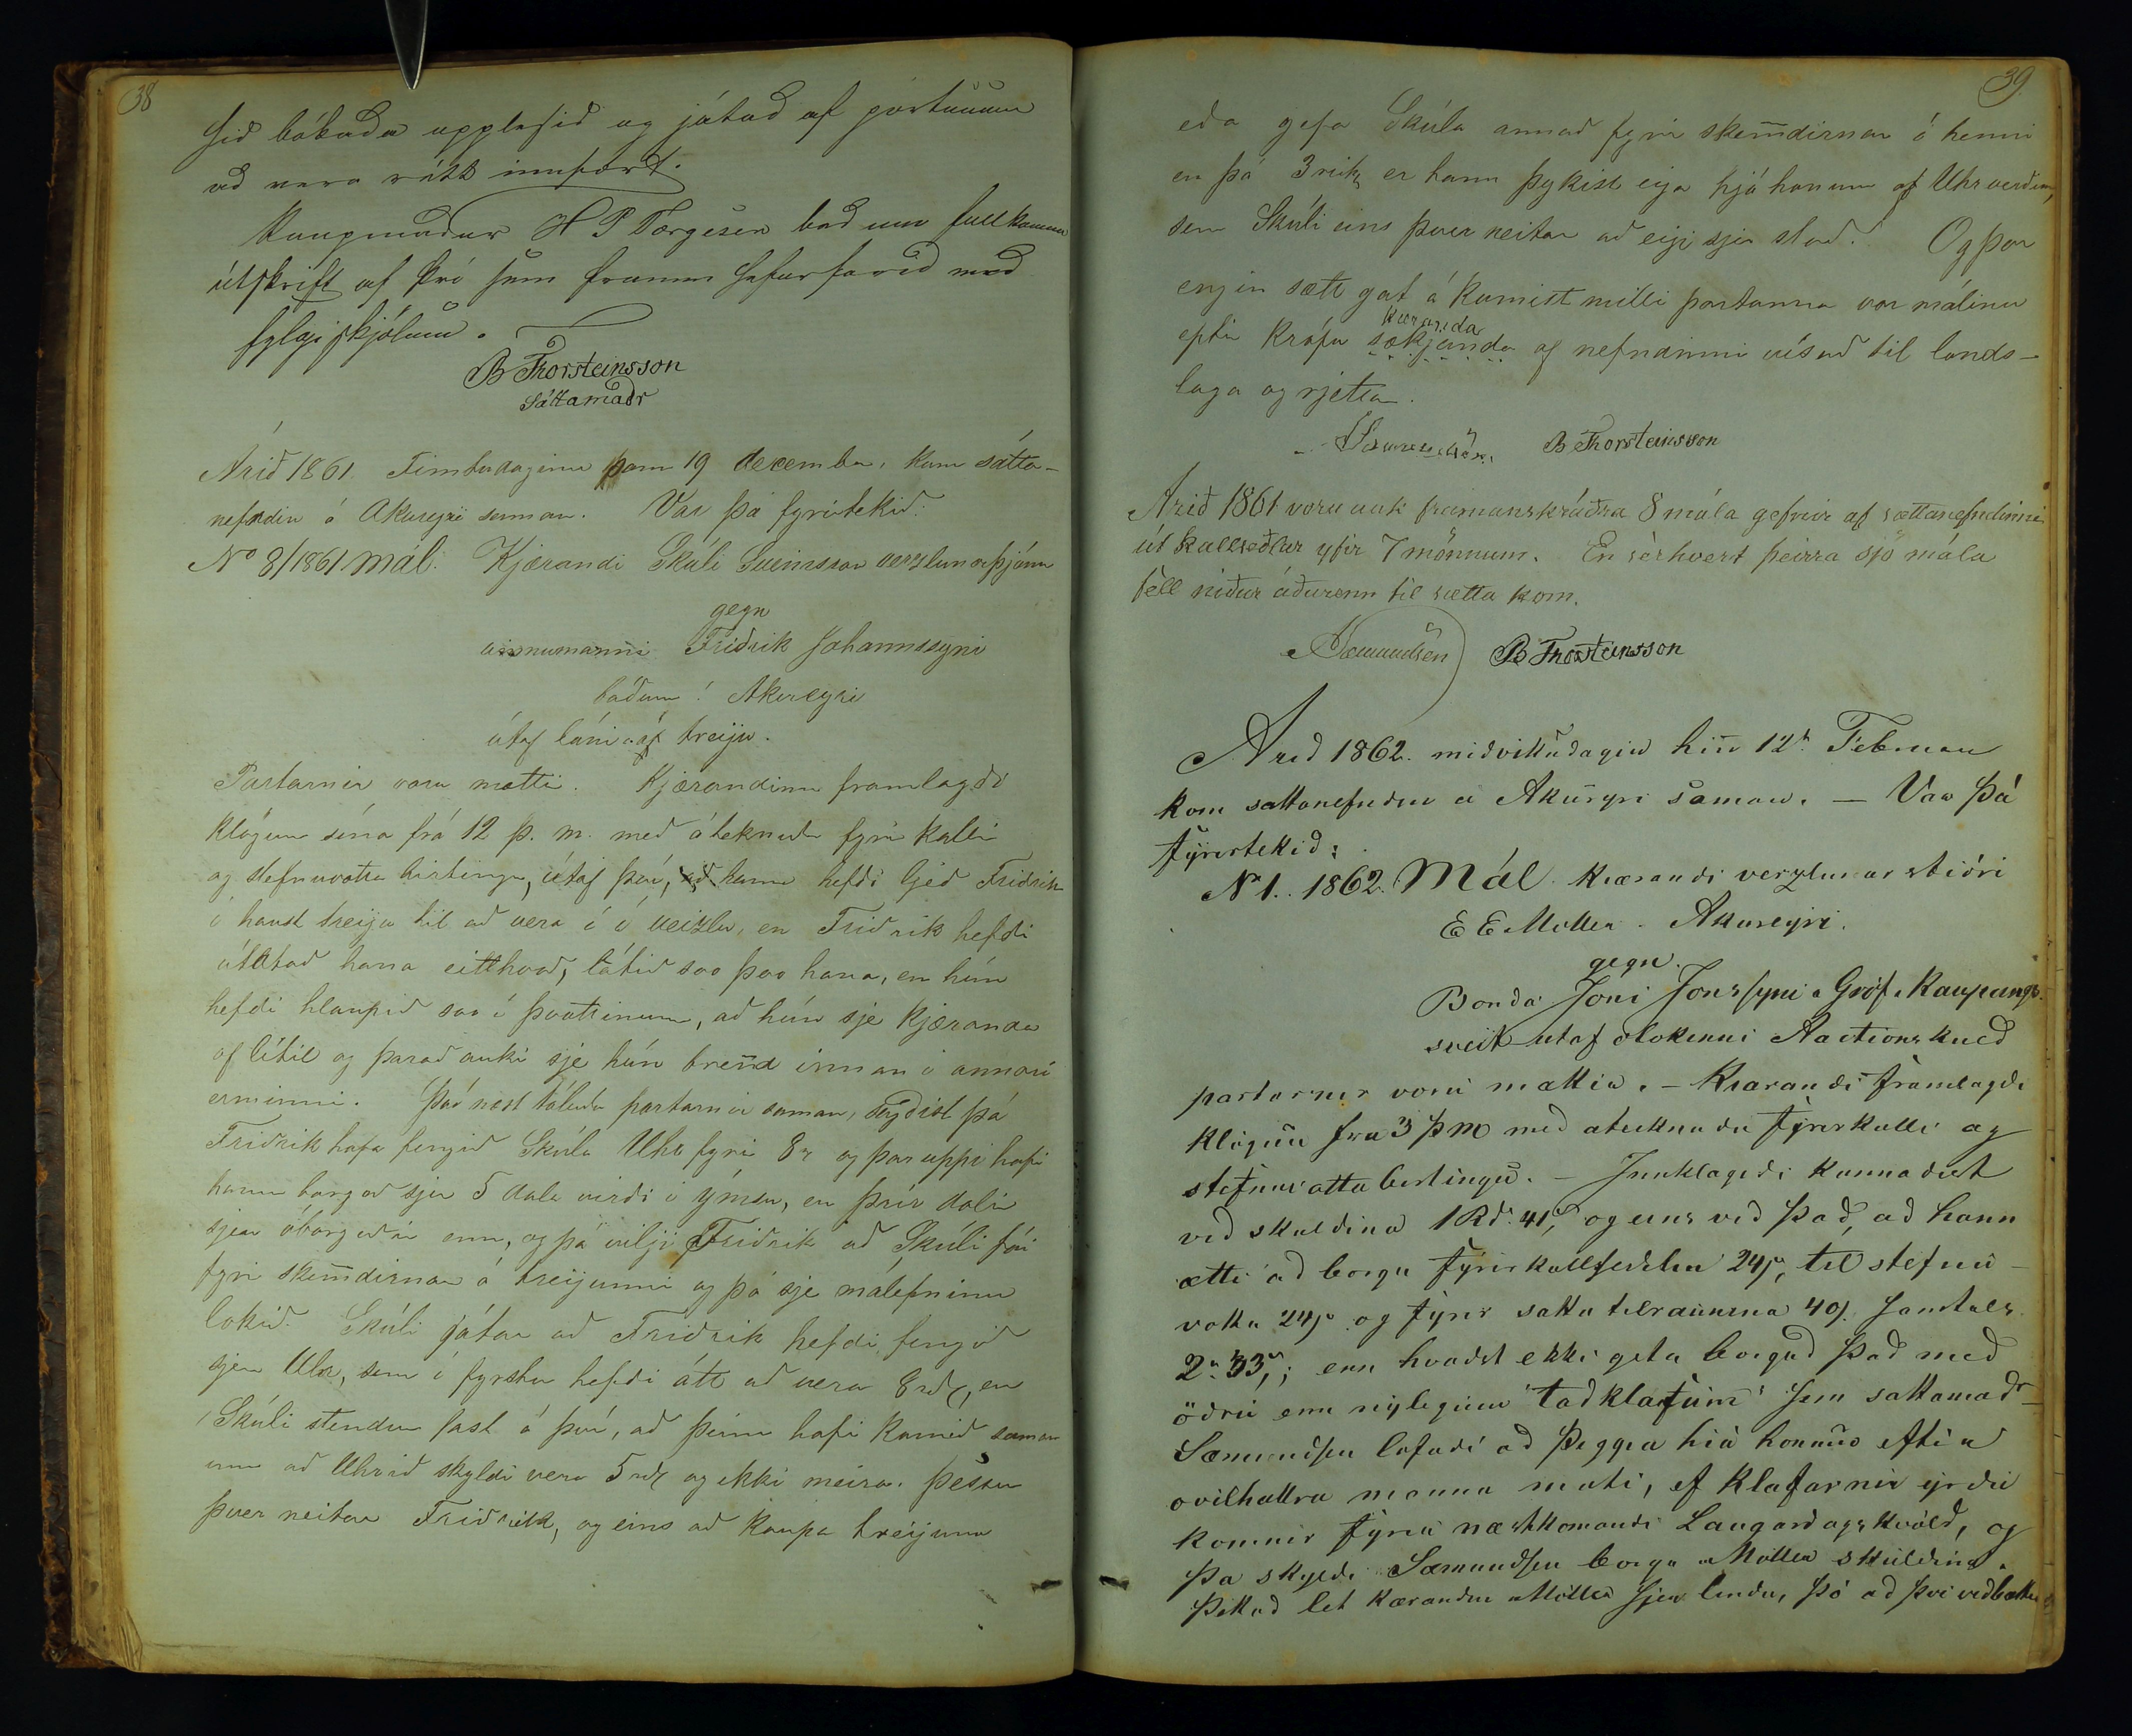 38
sið bókaða upplesið og játað af pörtunum
að vera rétt innfært.
Kaupmaður H P Tærgesen bað um fullkomna
útskrift af því sem framm hefur farið með
fylgiskjölum.
B Thorsteinsson
Sáttamaðr
Árið 1861. Fimtudaginn þann 19 december, kom sátta-
nefndin á Akureyri saman. Var þá fyrirtekið:
No 8/1861 Mál. Kjærandi Skúli Sveinsson verzlunarþjónn
gegn
vinnumanni Friðrik Jóhannssyni
báðum á Akureyri
útaf láni á treiju.
Partarnir voru mætti. Kjærandinn framlagði
klögun sína frá 12 þ. m. með áteknuðu fyrirkalli
og stefnuvotta birtingu, útaf því, að hann hefði ljeð Friðrik
í haust treiju til að vera í í veizlu, en Friðrik hefði
útatað hana eitthvað, látið svo þvo hana, en hún
hefði hlaupið svo í þvottinum, að hún sje kjæranda
of lítil og þarað auki sje hún brend innan í annari
erminni. Þar næst töluðu partarnir saman, sagðist þá
Friðrik hafa fengið Skúla Uhr fyrir 8 r og þar uppí hafi
hann borgað sjer 5 dala virði í ýmsu, en þrír dalir
sjeu óborgaðir enn, og þá vilji Friðrik að Skúli fái
fyrir skemdirnar á treijunni og þá sje málefninu
lokið. Skúli játar að Friðrik hefði fengið
sjer Uhr, sem í fyrstu hefði átt að vera 8 rd, en
Skúli stendur fast á því, að þeim hafi komið saman
um að Uhrið skyldi vera 5 rd og ekki meira. Þessu
þver neitar Friðrik, og eins að kaupa treijuna
39
eða gefa Skúla annað fyrir skemdirnar á henni
en þá 3 rd er hann þykist eiga hjá honum af Uhrverðinu,
sem Skúli eins þver neitar að eigi sjer stað. Og þar
engin sætt gat á komist milli partanna var málinu
kæranda
eptir kröfu sækjanda af nefndinni vísað til lands-
laga og rjettar.
Sæmundsen B Thorsteinsson
Árið 1861 voru auk framanskráðra 8 mála gefnir af sættanefndinni
út kallseðlar yfir 7 mönnum. En sèrhvert þeirra sjö mála
féll niður áðurenn til sætta kom.
Sæmundsen B Thorsteinsson
Arið 1862. miðvikudagin hin 12t Februar
kom sattanefndin a Akureyri saman. – Var þá
fyrirtekið:
No 1. 1862. Mál. Kærandi verzlunar stióri
E E Möller Akureyri.
gegn
Bonda Joni Jonssyni a Gröf i Kaupangs
sveit utaf olokenni Auctionskuld
partarnir voru mættir. – Kærandi framlagði
klögun fra 3 þ M með ateiknuðu fyrirkalli og
stefnuvotta birtingu. – Innklagði kannaðist
við skuldina 1 Rd. 41 s, og eins við það, að hann
ætti að borga fyrirkallseðilin 24 s, til stefnu-
votta 24 s og fyrir satta tilraunina 40 s. samtals
2 r 33 s; enn kvaðst ekki geta borgað það með
öðru enn nýlegum taðklafum sem sattamaðr
Sæmundsen lofaði að þiggia hiá honum eftir
ovilhallra manna mati, ef klafarnir yrðu
komnir fyrir næstkomandi Laugardagskvöld, og
þa skyldi Sæmundsen borga Möller skuldina.
Þettað let kærandin Möller sjer linda, þó að því viðbættu